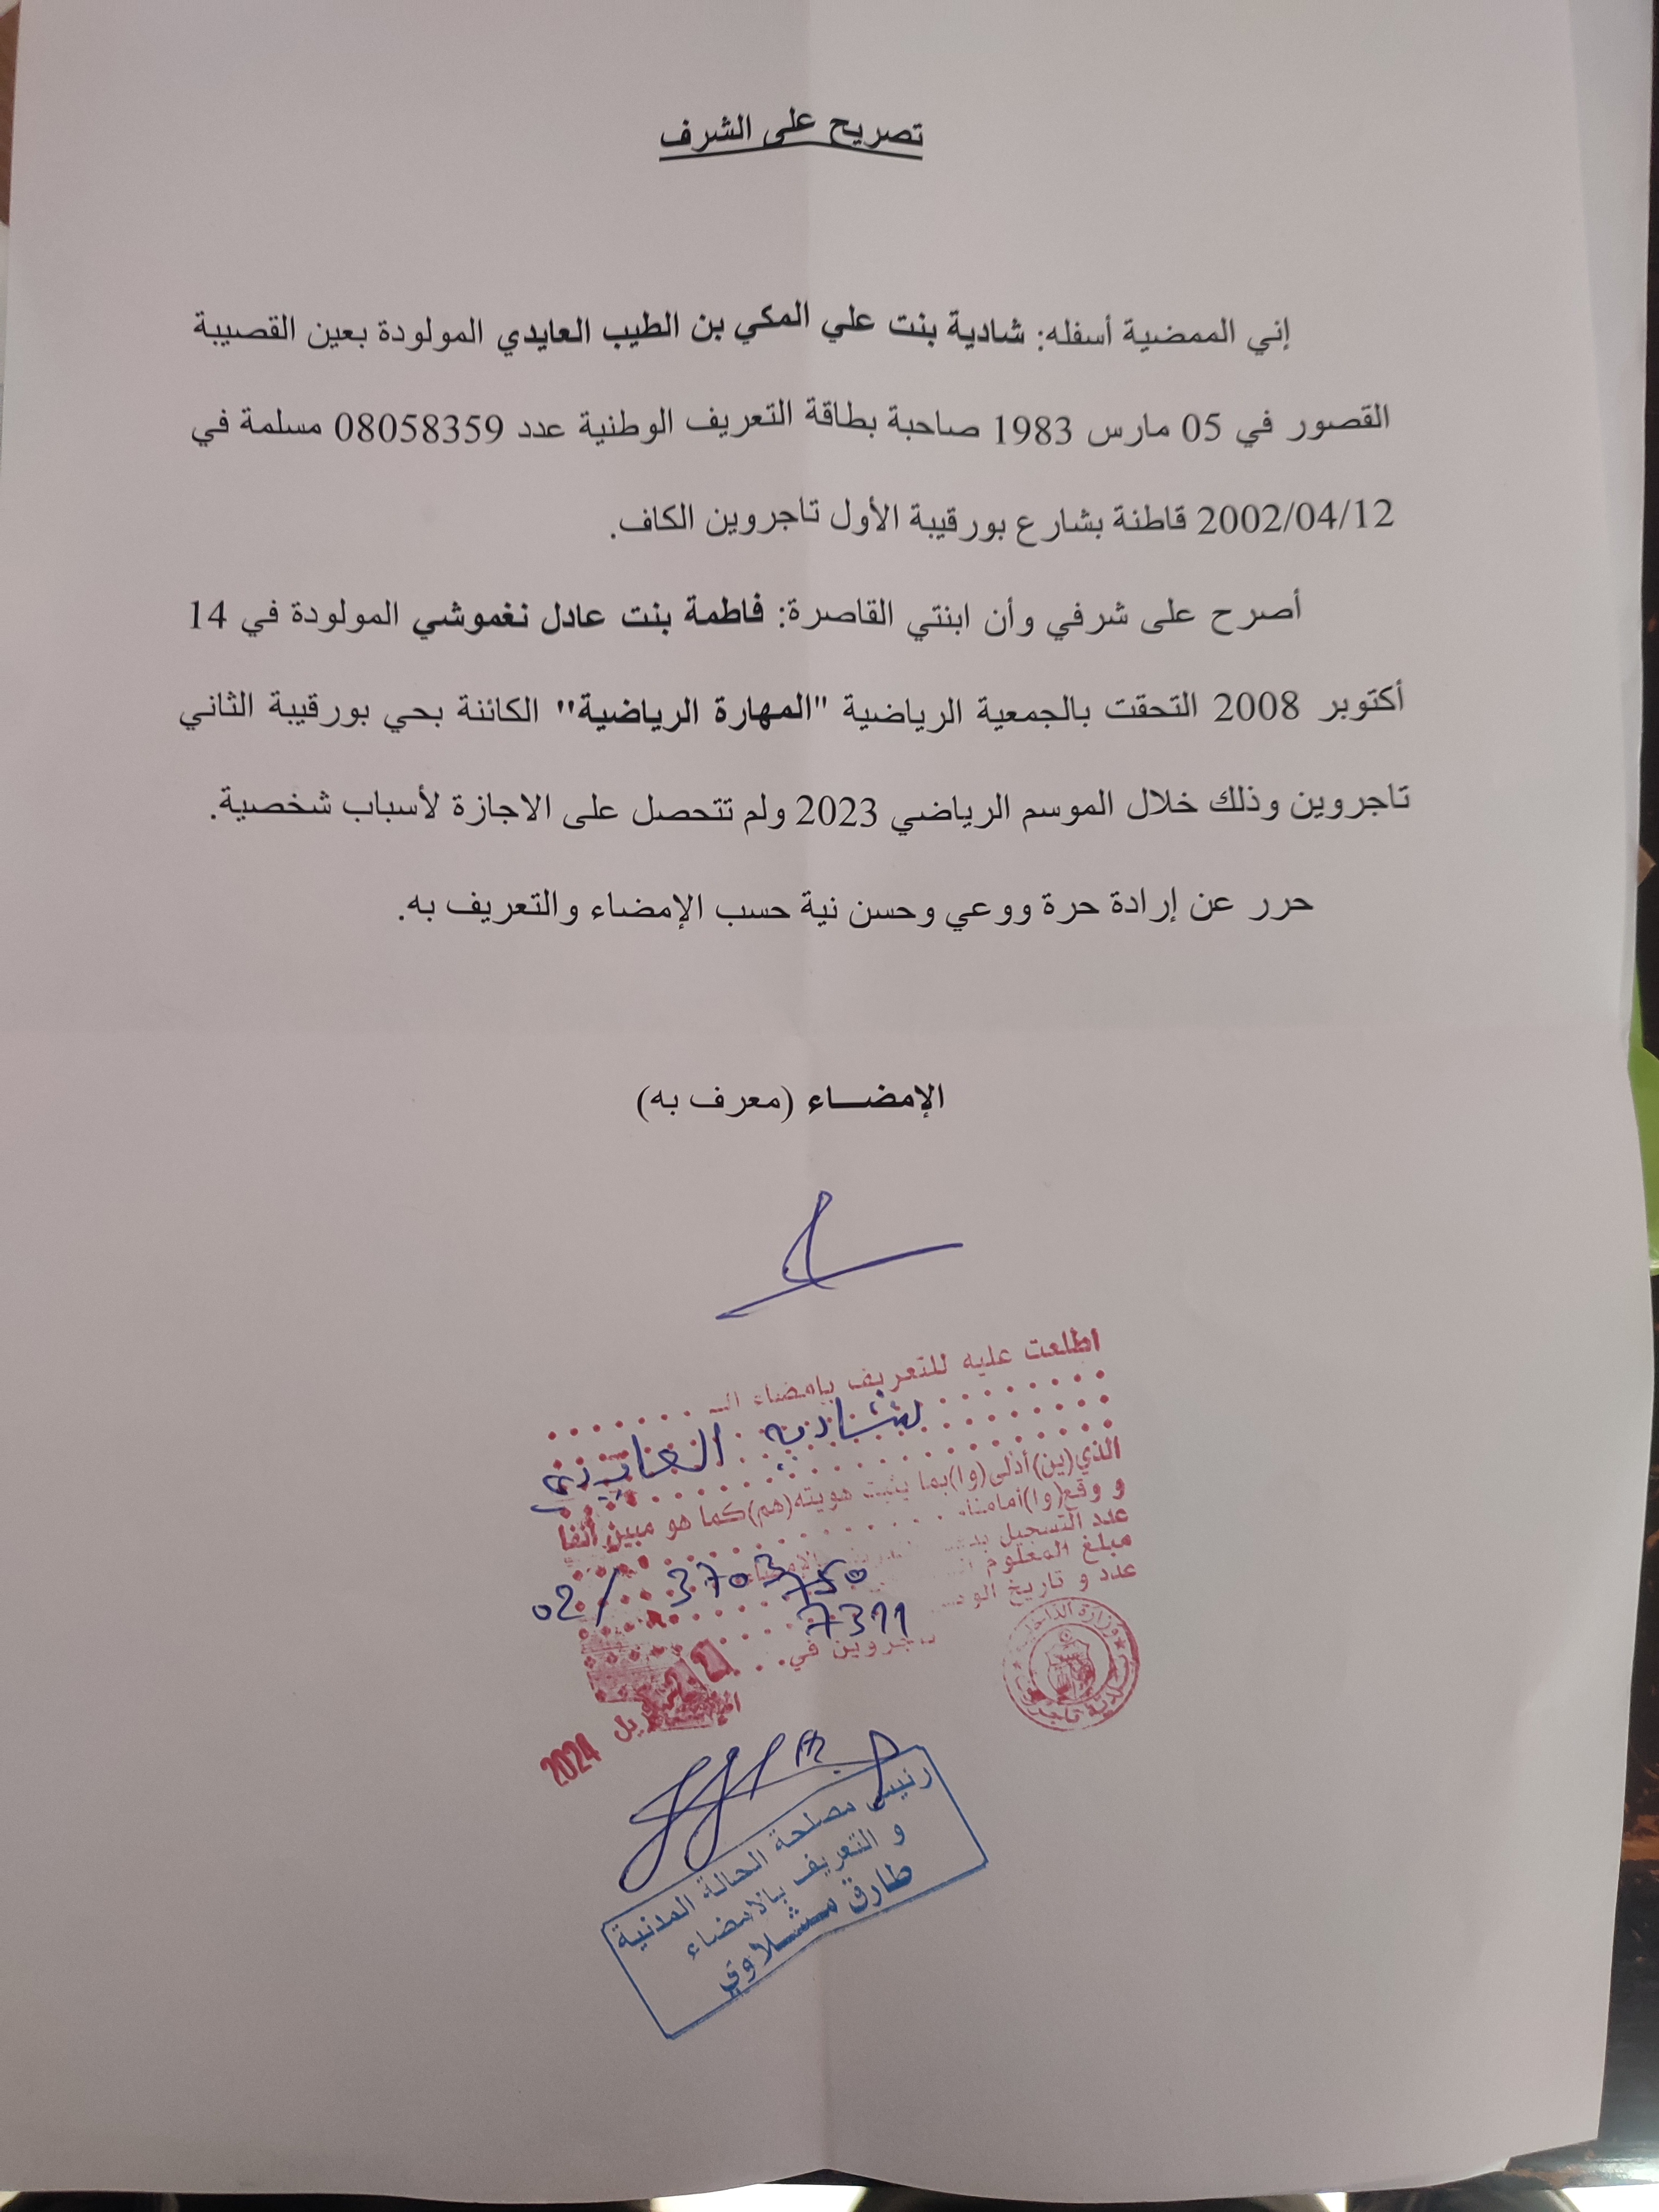 تصريح على الشرف
إني الممضية أسفله: شادية بنت علي المكي بن الطيب العايدي المولودة بعين القصيبة
القصور في 05 مارس 1983 صاحبة بطاقة التعريف الوطنية عدد 08058359 مسلمة في
2002/04/12 قاطنة بشارع بورقيبة الأول تاجروين الكاف.
أصرح على شرفي وأن ابنتي القاصرة: فاطمة بنت عادل نغموشي المولودة في 14
أكتوبر 2008 التحقت بالجمعية الرياضية "المهارة الرياضية" الكائنة بحي بورقيبة الثاني
تاجروين وذلك خلال الموسم الرياضي 2023 ولم تتحصل على الاجازة لأسباب شخصية.
حرر عن إرادة حرة ووعي وحسن نية حسب الإمضاء والتعريف به.
الإمضـــاء (معرف به)
اطلعت عليه للتعريف بإمضاء الـ
شادية العايدي
الذي(ين)أدلى(وا)بما يثبت هويته(هم)كما هو مبين أنفا
و وقع(وا)أمامنا
عدد التسجيل
02/ 3703
مبلغ المعلوم
750
عدد و تاريخ
7311
تاجروين في
2024
وزارة الداخلية
بلدية تاجروين
رئيس مصلحة الحالة المدنية
و التعريف بالامضاء
طارق مشلاوي